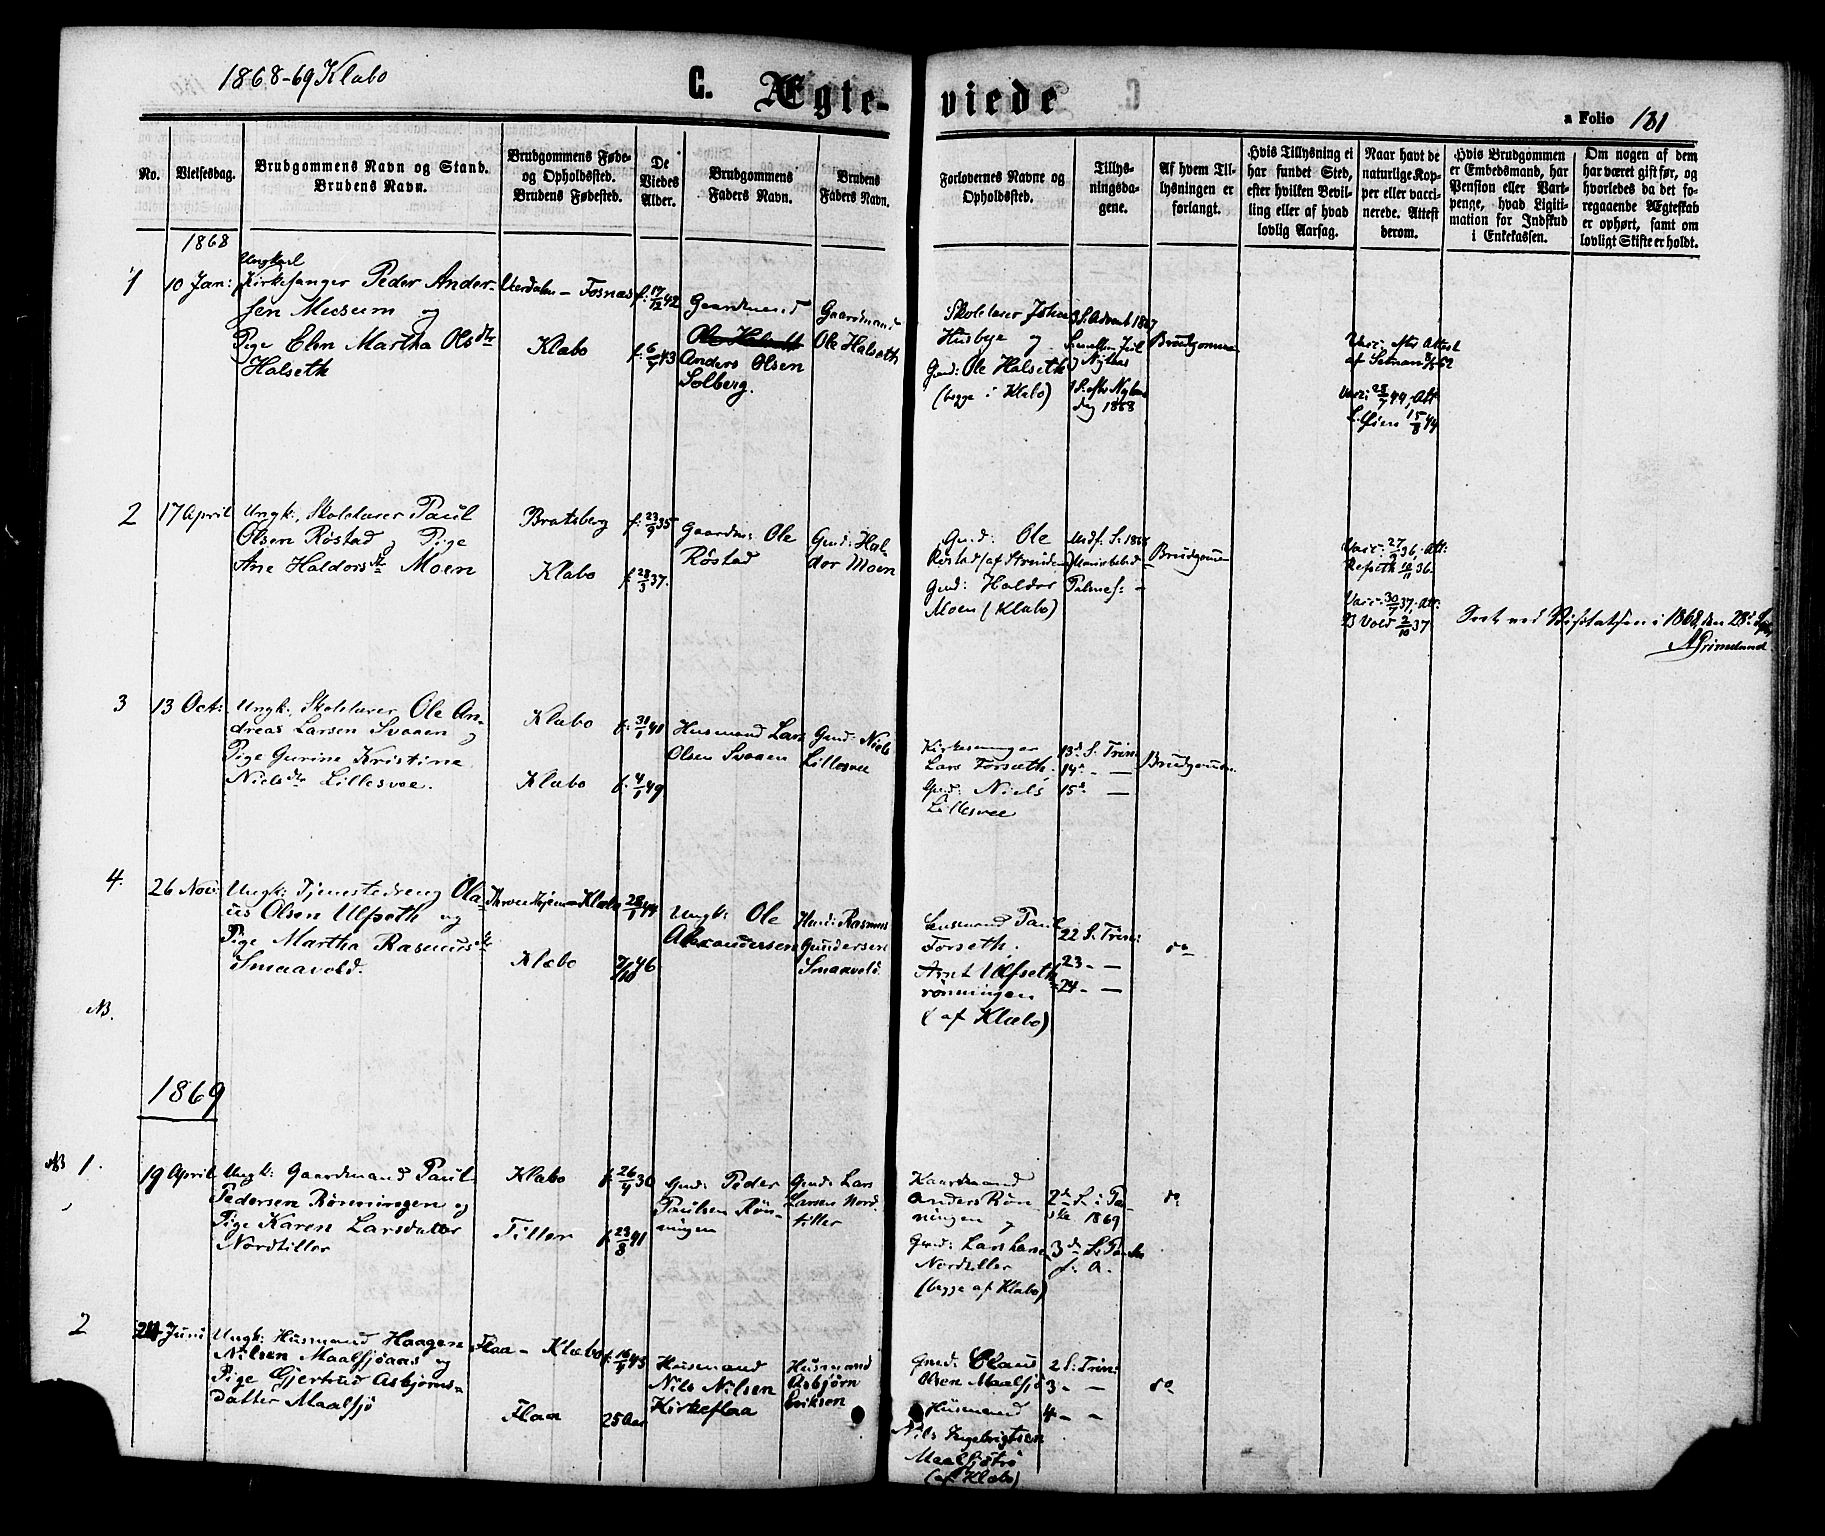 1868-69 Klæbo
C. Ægte-viede
a Folio 131
No.
Vielsesdag.
Brudgommens Navn og Stand.
Brudens Navn.
Brudgommens Føde-
og Opholdssted.
Brudens Fødested.
De
Viedes
Alder.
Brudgommens
Faders Navn.
Brudens
Faders Navn.
Forlovernes Navne og
Opholdssted.
Tillys-
ningsda-
gene.
Af hvem Til-
lysningen er
forlangt.
Hvis Tillysning ei
har fundet Sted,
efter hvilken Bevil-
ling eller af hvad
lovlig Aarsag.
Naar havt de
naturlige Kop-
per eller vacci-
nerede. Attest
derom.
Hvis Brudgommen
er Embedsmand, har
Pension eller Vart-
penge, hvad Ligiti-
mation for Indskud
i Enkekassen.
Om nogen af dem
har været gift før, og
hvorledes da det fo-
regaaende Ægteskab
er ophørt, samt om
lovligt Skifte er holdt.
1868
1
10 Jan:
Ungkarl
Kirkesanger Peder Ander-
sen Museum og
Pige Elen Martha Olsdtr
Halseth
Værdalen - Fosnæs
Klæbo
f: 17/12 42
f. 6/9 43
Gaardmand
Ole Halseth
Anders Olsen
Solberg.
Gaardmand
Ole Halseth
Skolelærer Johan
Husbye og
Gmd: Ole Halseth
(begge i Klæbo)
3 S. Advent 1867
S. mellem Juul
Nytaar
1 S. efter Nytaars
dag 1868
Brudgommen
Vacc: Attest
Vacc: 28/7 44, Att
15/8 44
2
17 April
Ungk: Skolelærer Paul
Olsen Röstad og Pige
Ane Haldorsdtr Moen
Bratsberg
Klæbo
f. 23/9 35
f. 28/3 37.
Gaardm: Ole
Röstad
Gmd: Hal-
dor Moen
Gmd: Ole
Röstad (af Strinden)
Gmd: Haldor
Moen (Klæbo)
Midf. S. 1868
Mariæ bebud
Palmes: -
Brudgommen
Vacc: 27/9 36, Att:
Refseth 10/11 36.
Vacc: 30/9 37, Att:
B Vold 2/10 37
Seet ved Visitatsen i 1868, den 28de
AGrimelund
3
13 Oct:
Ungk: Skolelærer Ole An-
dreas Larsen Svaaen og
Pige Gurine Kristine
Nielsdtr Lillesvee.
Klæbo
Klæbo
f: 31/1 41
f. 4/1 49
Husmand Lars
Olsen Svaaen
Gmd: Niels
Lillesvee
Kirkesanger
Lars Forseth,
Gmd: Niels
Lillesvee
13de S. Trin:
14de - —
15de —
Brudgommen
4.
26 Nov:
Ungk: Tjenestedreng Ola-
us Olsen Ulfseth og
Pige Martha Rasmusdtr
Smaavold.
- Klæbo
Klæbo
28/1 44
7/10 46
Ungk: Ole
Alexandersen
Husmd: Rasmus
Gundersen
Smaavold
Lensmand Paul
Forseth.
Arnt Ulfseth-
rönningen
(af Klæbo)
22 S. Trin:
23 - —
24 - —
do
NB.
1869
NB 1.
19 April
Ungk: Gaardmand Paul
Pedersen Rönningen og
Pige Karen Larsdatter
Nordtiller
Klæbo
Tiller
f. 26/9 30
f. 23/8 41
Gmd: Peder
Paulsen Rön-
ningen
Gmd: Lars
Larsen Nord-
tiller
Gaardmand
Anders Rön-
ningen og
Gmd: Lars Larsen
Nordtiller
(begge af Klæbo)
2den S. i Pa-
ske 1869
3de S. i Paaske
s: A.
do
2
24 Juni
Ungk: Husmand Haagen
Nilsen Maalsjöaas og
Pige Gjertrud Asbjörns-
datter Maalsjö
Flaa - Klæbo
Flaa
f. 16/9 43
25 Aar
Husmand
Nils Nilsen
Kirkeflaa
Husmand
Asbjörn
Eriksen
Gmd: Claus
Olsen Maalsjö
Husmand
Nils Ingebrigtsen
Maalsjötrö
(af Klæbo)
2 S. Trin:
3 - —
4 - -
do